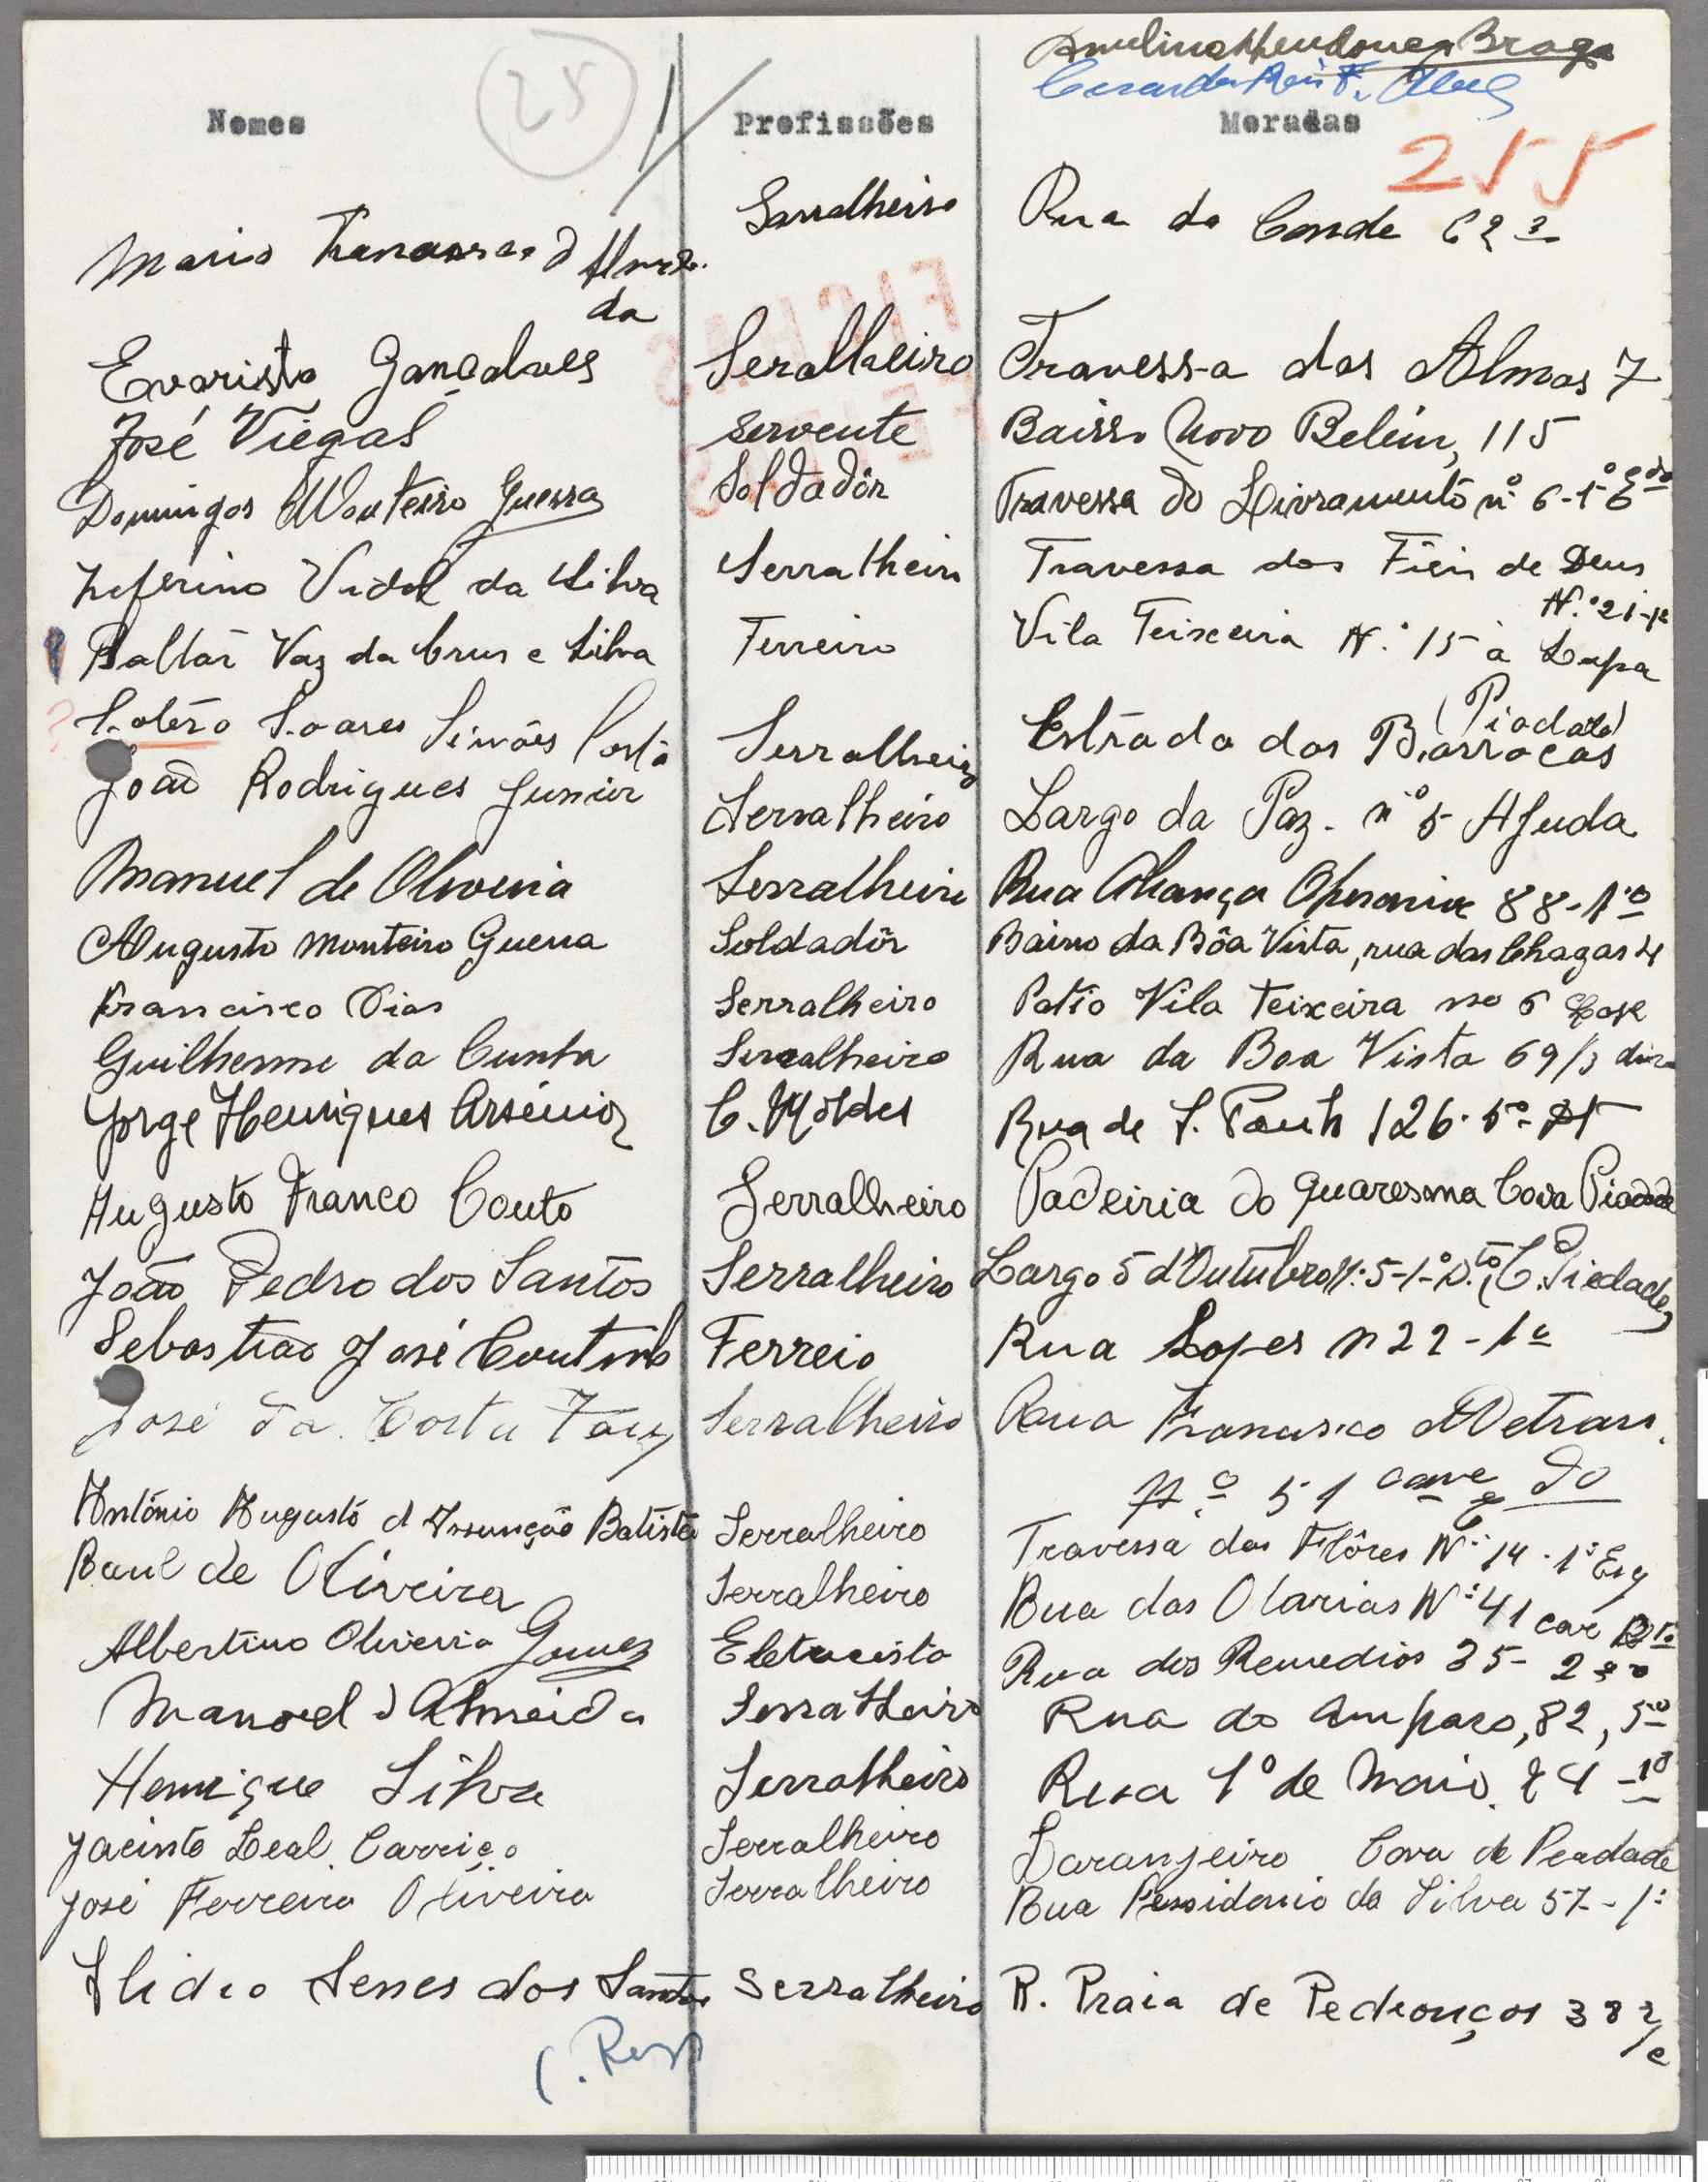 Braga
25
Nomes Profissões Moradas
255
Serralheiro Rua do Conde 62 3º
Mario d'Almei
da
Evaristo Gonçalves Seralheiro Travessa das Almas 7
José Viegas Servente Bairro Novo Belém, 115
Domingos Monteiro Guerra Soldadôr Travessa do Livramento nº 6-1º Edo
Zeferino Vidal da Silva Serralheiro Travessa dos Fieis de Deus
N.º 21-1º
Baltár Vaz da Crus e Silva Ferreiro Vila Teixeira N.º 15 á Lapa
Sotéro Soares Simões Costa Serralheiro Estráda das Barrocas (Piadade)
João Rodrigues Junior Serralheiro Largo da Paz. nº 5 Ajuda
Manuel de Oliveira Serralheiro Rua Aliança Operaria 88-1º
Augusto Monteiro Guerra Soldadôr Bairro da Bôa Vista, rua das Chagas 4
Francisco Dias Serralheiro Patio Vila Teixeira no 6
Guilherme da Cunha Serralheiro Rua da Boa Vista 69/3
Jorge Henriques Arsénio C. Moldes Rua de S. Paulo 126-5º-Dt
Augusto Franco Couto Serralheiro Padeiria do Quaresma Cova Piadade
João Pedro dos Santos Serralheiro Largo 5 d'Outubro N.º 5-1º D.to, C. Piedade
Sebastião José Coutinho Ferreio Rua Lopes n 22-1º
José da Costa Serralheiro Rua Francisco Metrass.
Nº 51 cave
António Augusto d'Assunção Batista Serralheiro Travessa das Flôres Nº 14-1º Esq
Raul de Oliveira Serralheiro Rua das Olarias Nº 41 cave Dto
Albertino Oliveira Gomes Eletrecista Rua dos Remedios 35-2
Manoel d'Almeida Serralheiro Rua do Amparo, 82, 5º
Henrique Silva Serralheiro Rua 1º de Maio. 24-1º
Jacinto Leal Carriço Serralheiro Laranjeiro Cova de Peadade
José Ferreira Oliveira Serralheiro Rua Pessidonio da Silva 57-1º
Ilidio Senes dos Santos Serralheiro R. Praia de Pedrouços 38 r/c